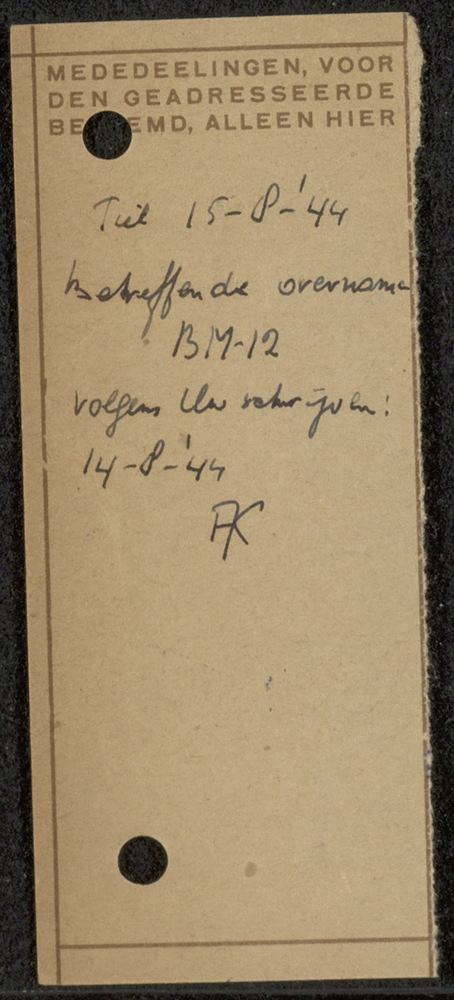 MEDEDEELINGEN, VOOR
DEN GEADRESSEERDE
BE EMD, ALLEEN HIER
Tiel 15-8-'44
Betreffende overname
BM-12
volgens Uw schrijven:
14-8-'44
AK